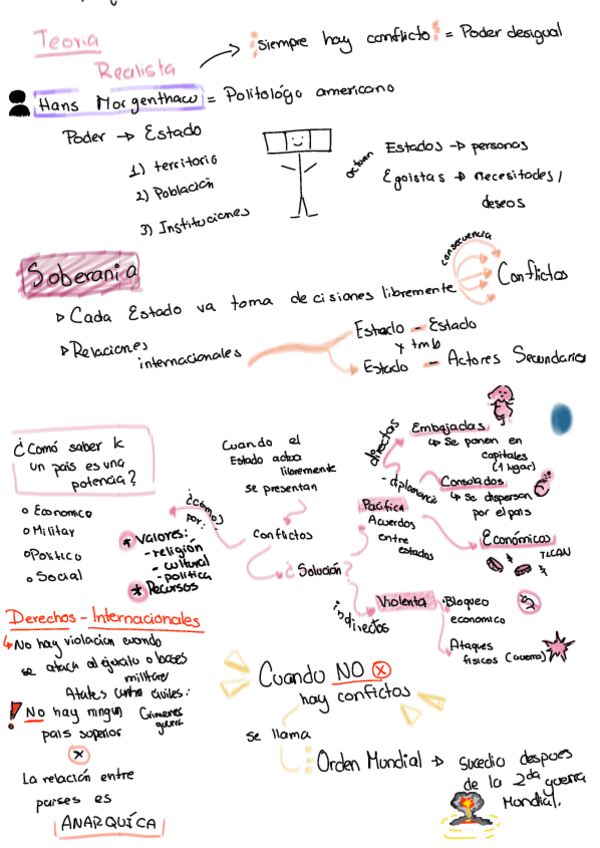 Teoria
Realista
siempre hay conflicto = Poder desigual
Hans Morgenthaw = Politológo americano
Poder → Estado
1) territorio
2) Población
3) Instituciones
actuan
Estados → personas
Egoistas → necesitades /
deseos
Soberania
▷ Cada Estado va toma decisiones libremente
consecuencia
Conflictos
▷ Relaciones
internacionales
Estado - Estado
x tmb
Estado - Actores Secundarios
¿Comó saber k
un país es una
potencia?
o Economico
o Militar
o Politico
o Social
Cuando el
Estado actua
libremente
se presentan
Conflictos
¿cómo?
por:
* Valores:
- religión
- cultural
- politica
* Recursos
¿Solución?
directos
Pacifica
Acuerdos
entre
estados
- diplomancia
Embajadas
↳ Se ponen en
capitales
(1 lugar)
Consolados
↳ Se dispersan
por el país
Económicos
TLCAN
indirectos
Violenta
· Bloqueo
economico
· Ataques
fisicos (Guerra)
Derechos - Internacionales
↳ No hay violacion cuando
se ataca al ejercito o bases
militares
civiles:
Crimenes
guerra
! No hay ningun
país superior
x
La relación entre
paises es
ANARQUÍCA
Cuando NO x
hay confictos
se llama
Orden Mundial → sucedio despues
de la 2da guerra
Mundial.